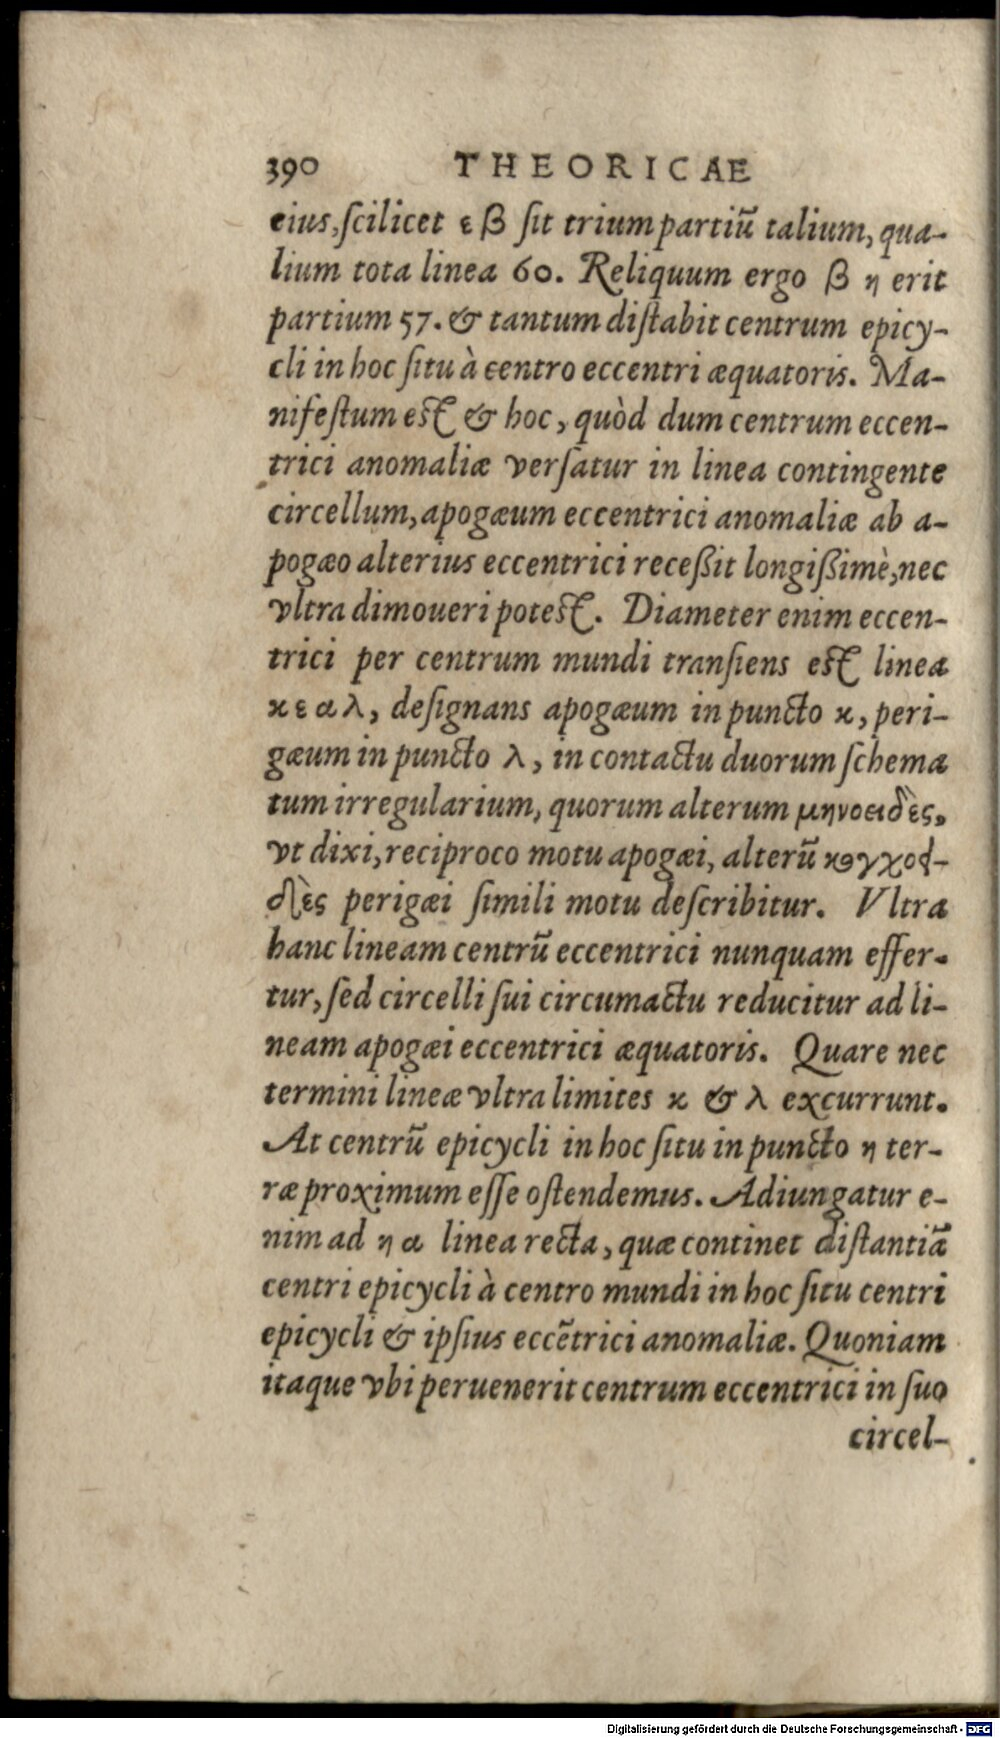 390 THEORICAE
eius, ſcilicet ε β ſit trium partiũ talium, qua-
lium tota linea 60. Reliquum ergo β η erit
partium 57. & tantum diſtabit centrum epicy-
cli in hoc ſitu à centro eccentri æquatoris. Ma-
nifeſtum eſt & hoc, quòd dum centrum eccen-
trici anomaliæ verſatur in linea contingente
circellum, apogæum eccentrici anomaliæ ab a-
pogæo alterius eccentrici receßit longißimè, nec
vltra dimoueri poteſt. Diameter enim eccen-
trici per centrum mundi tranſiens eſt linea
κ ε α λ, deſignans apogæum in puncto κ, peri-
gæum in puncto λ, in contactu duorum ſchema
tum irregularium, quorum alterum μηνοειδὲς,
vt dixi, reciproco motu apogæi, alterũ
perigæi ſimili motu deſcribitur. Vltra
hanc lineam centrũ eccentrici nunquam effer-
tur, ſed circelli ſui circumactu reducitur ad li-
neam apogæi eccentrici æquatoris. Quare nec
termini lineæ vltra limites κ & λ excurrunt.
At centrũ epicycli in hoc ſitu in puncto η ter-
ræ proximum eſſe oſtendemus. Adiungatur e-
nim ad η α linea recta, quæ continet diſtantiã
centri epicycli à centro mundi in hoc ſitu centri
epicycli & ipſius eccẽtrici anomaliæ. Quoniam
itaque vbi peruenerit centrum eccentrici in ſuo
circel-
Digitalisierung gefördert durch die Deutsche Forschungsgemeinschaft - DFG